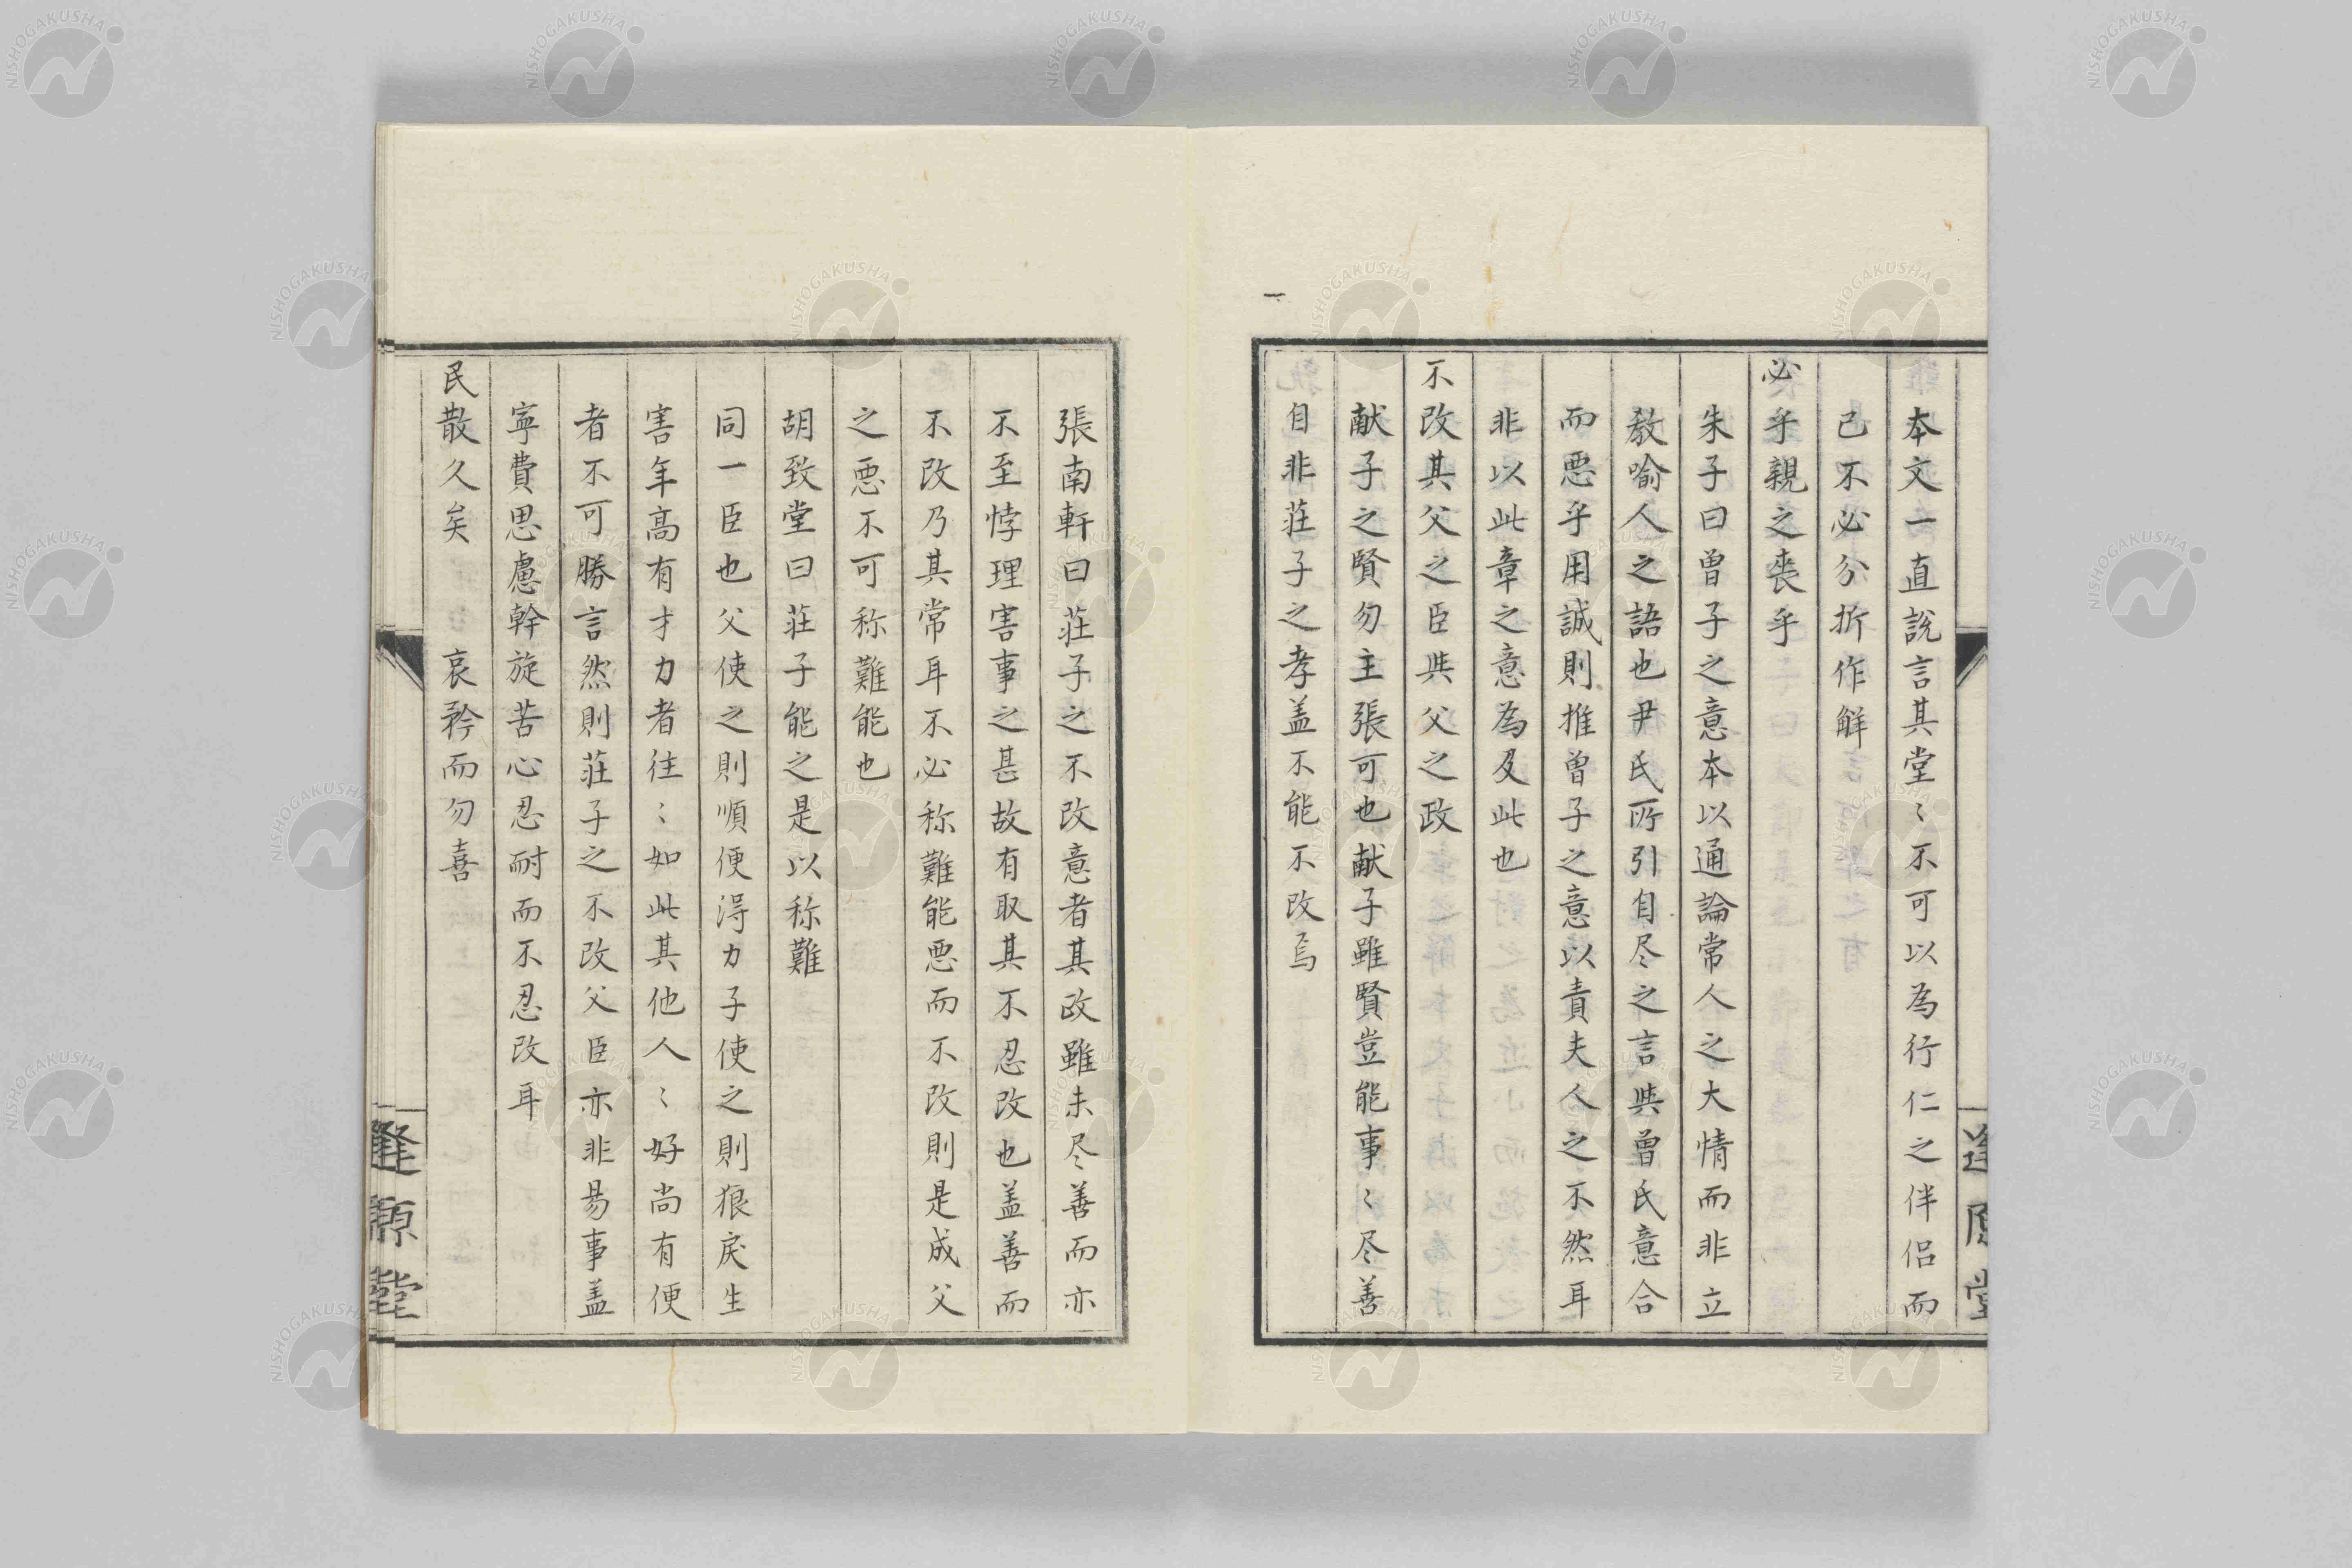 本文一直說言其堂〻不可以為行仁之伴侶而
已不必分折作解
必乎親之喪乎
朱子曰曽子之意本以通論常人之大情而非立
教喻人之語也尹氏所引自尽之言与曽氏意合
而悪乎用誠則推曽子之意以責夫人之不然耳
非以此章之意為及此也
不改其父之臣与父之政
献子之賢勿主張可也献子雖賢豈能事〻尽善
自非荘子之孝盖不能不改焉
張南軒曰荘子之不改意者其政雖未尽善而亦
不至悖理害事之甚故有取其不忍改也盖善而
不改乃其常耳不必称難能悪而不改則是成父
之悪不可称難能也
胡致堂曰荘子能之是以称難
同一臣也父使之則順便得力子使之則狼戻生
害年高有才力者往〻如此其他人〻好尚有便
者不可勝言然則荘子之不改父臣亦非易事盖
寧費思慮幹旋苦心忍耐而不忍改耳
民散久矣 哀矜而勿喜
逢原堂
NISHOGAKUSHA